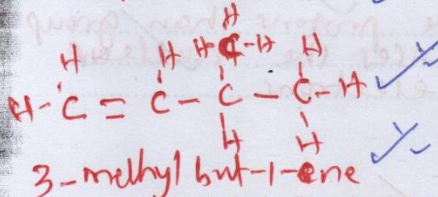 H
H H H-C-H H
H-C = C - C - C-H
H H
3-methyl but-1-ene